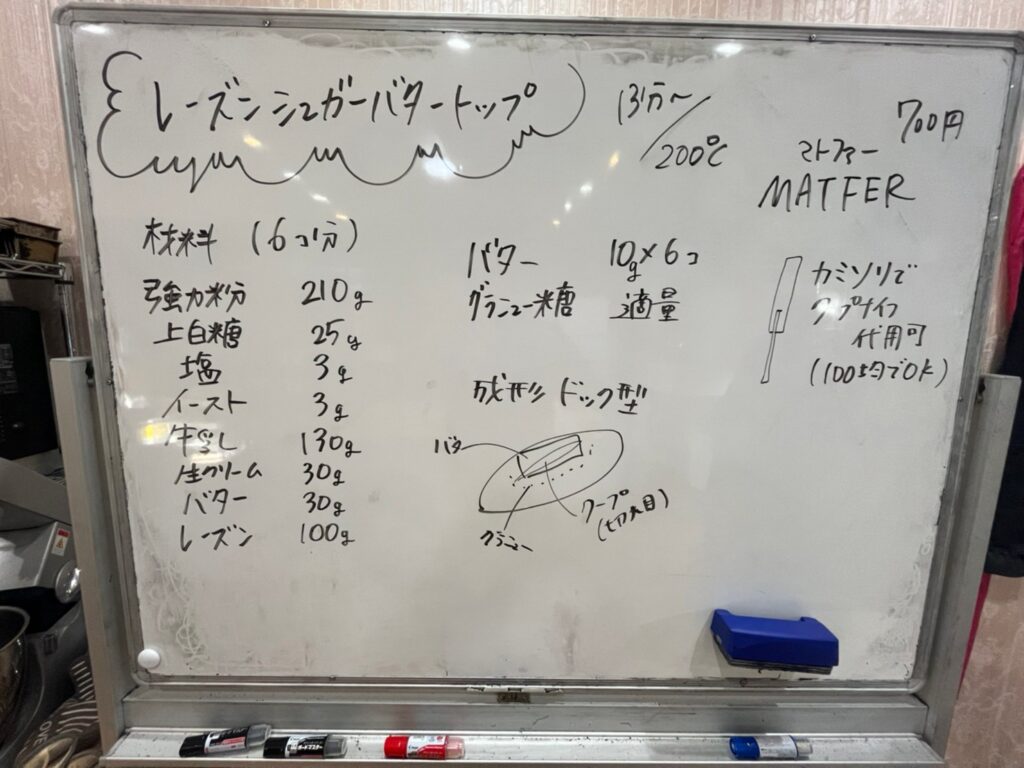 レーズンシュガーバタートップ
13分〜/200℃
700円
マトファー
MATFER
材料 (6コ分)
強力粉 210g
上白糖 25g
塩 3g
イースト 3g
牛乳 130g
生クリーム 30g
バター 30g
レーズン 100g
バター 10g×6コ
グラニュー糖 適量
成形 ドック型
バター
クープ
(切れ目)
グラニュー
カミソリで
クープナイフ
代用可
(100均でOK)